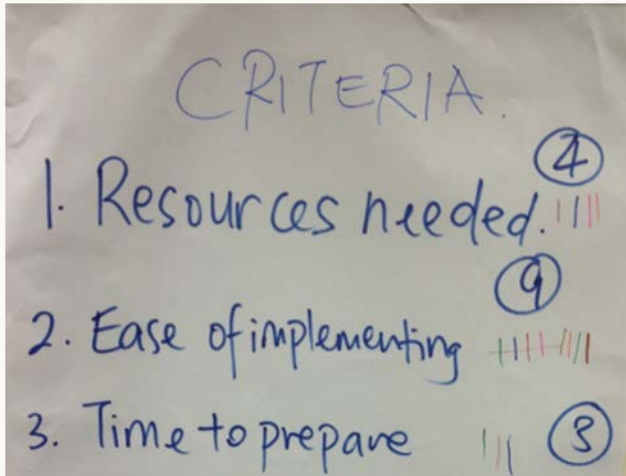 CRITERIA.
4
1. Resources needed. ||||
9
2. Ease of implementing 卌 ||||
3. Time to prepare ||| 3